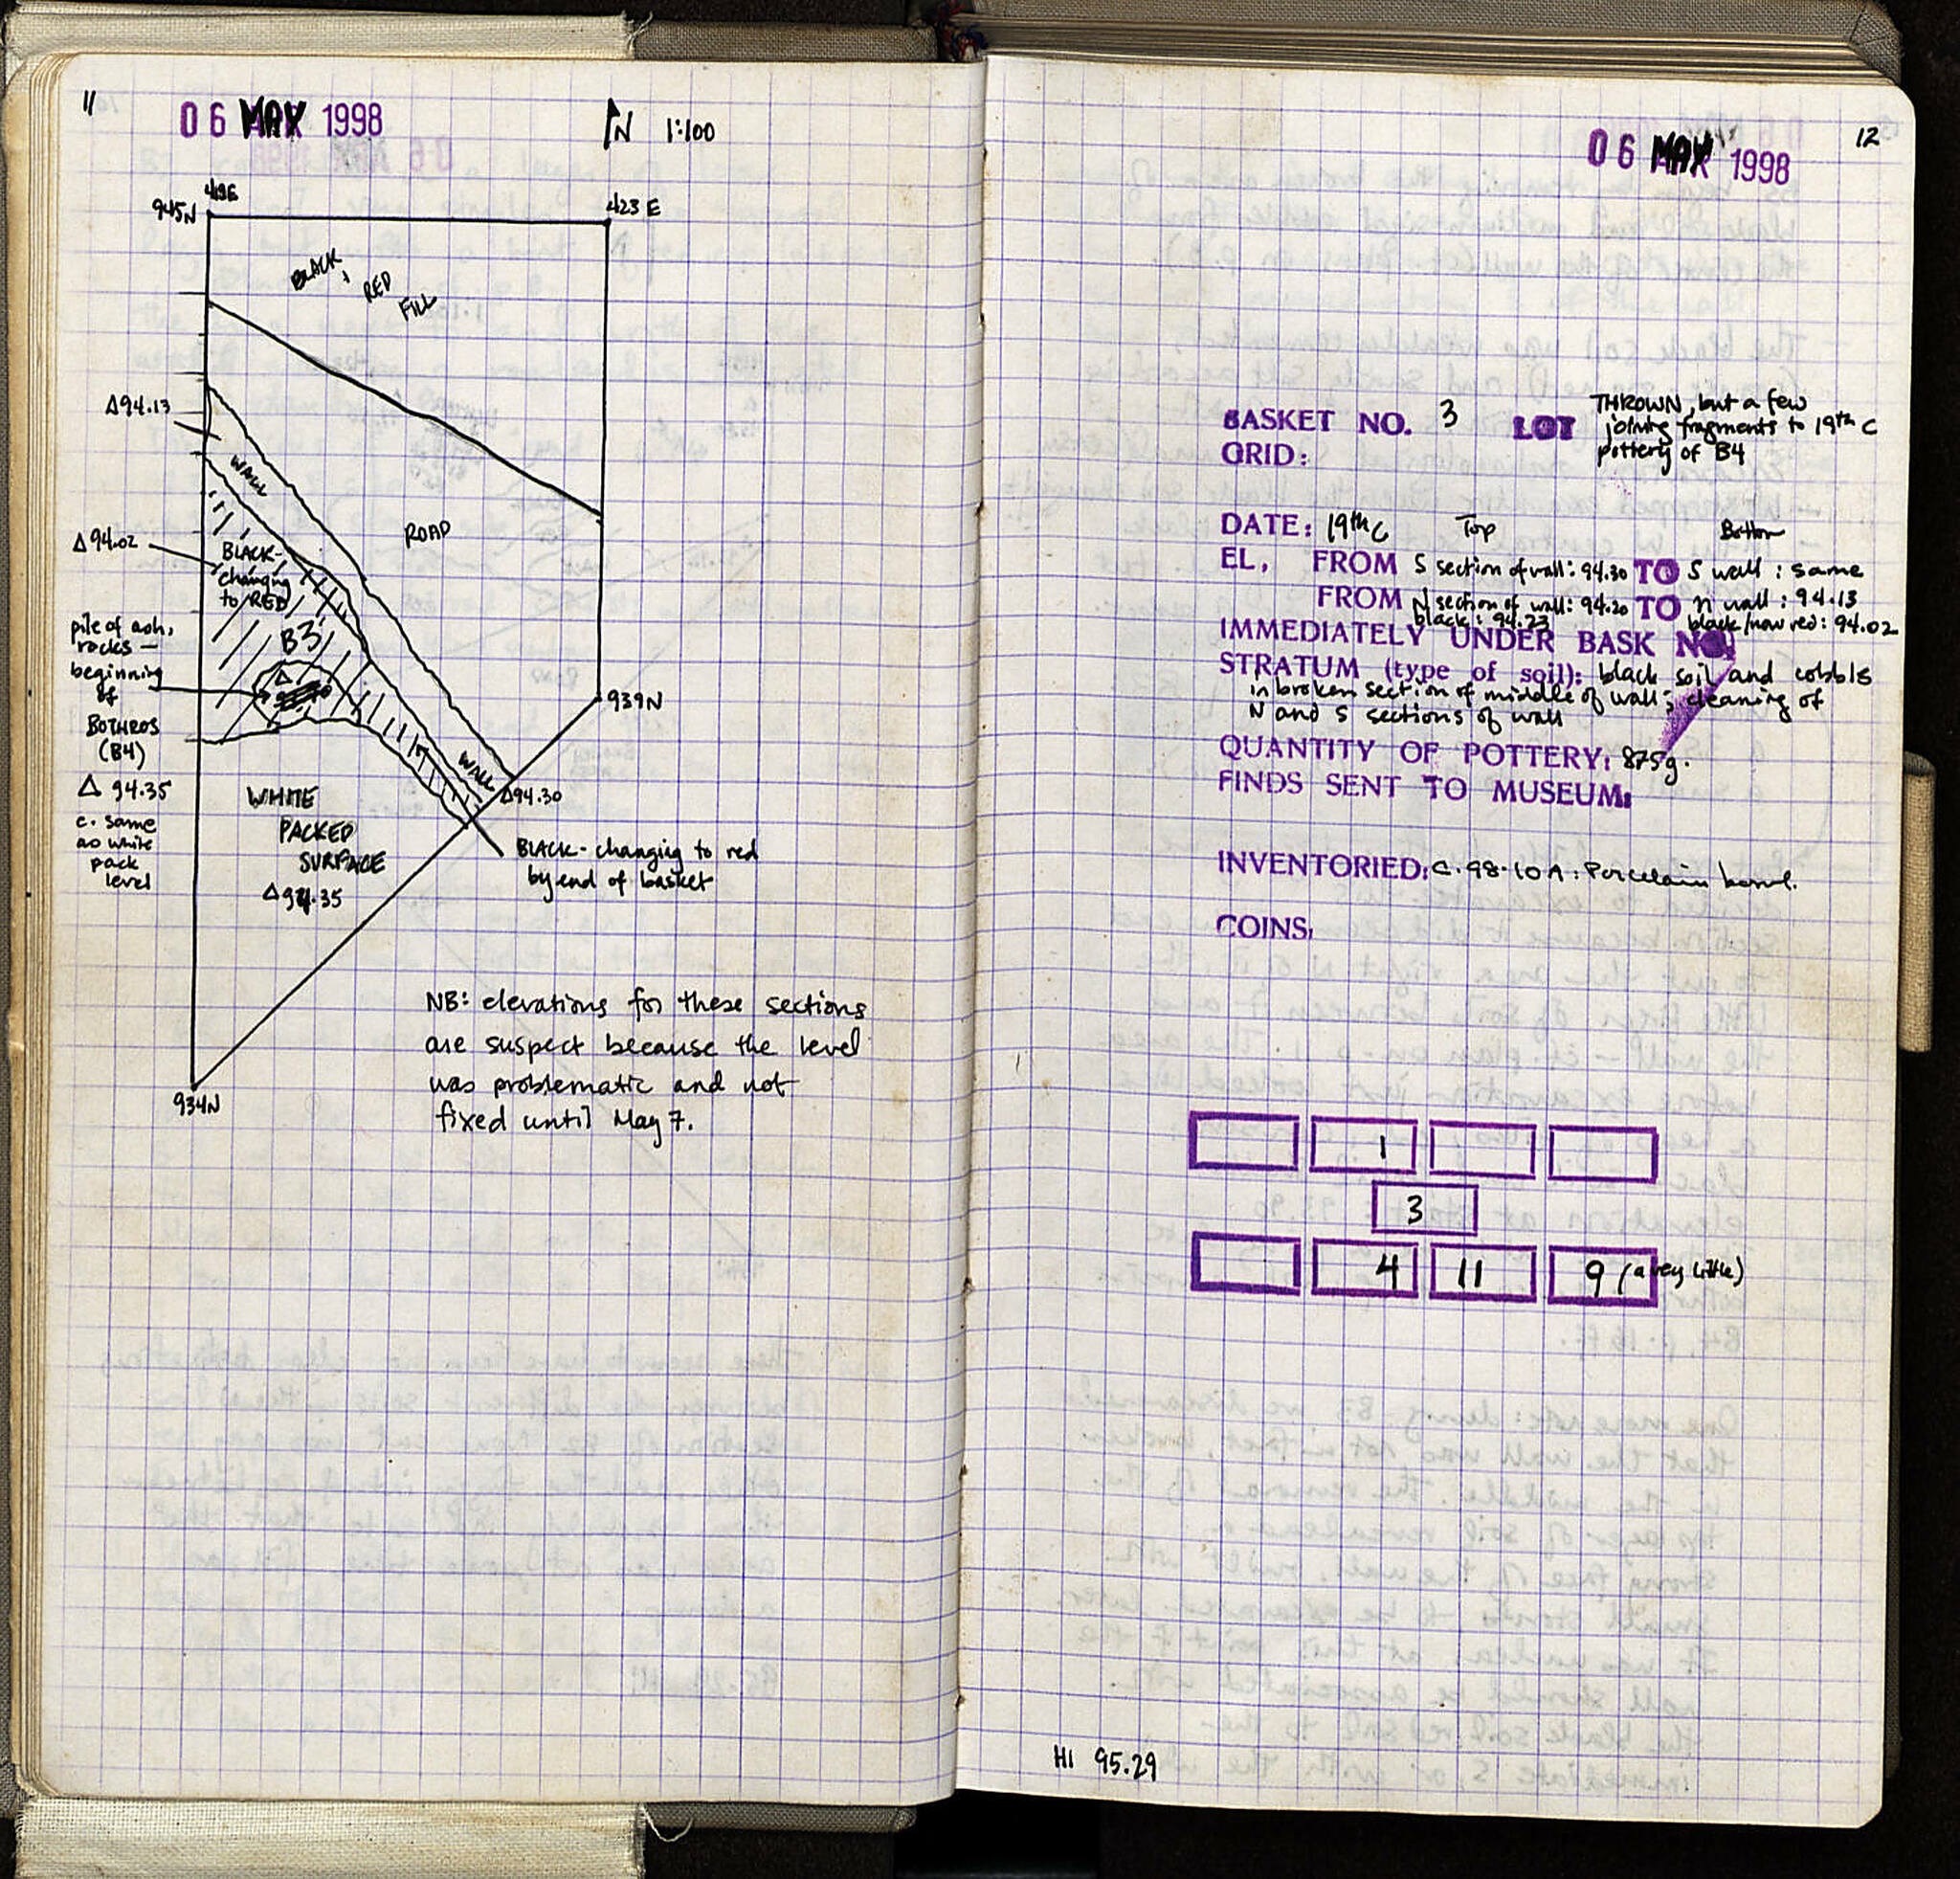 11
06 MAY 1998
N 1:100
419E
945N
423 E
BLACK, RED FILL
Δ94.13
WALL
ROAD
Δ94.02
BLACK-
changing
to RED
B3
pile of ash,
rocks —
beginning
of
BOTHROS
(B4)
Δ 94.35
c. same
as white
pack
level
939N
WALL
Δ94.30
WHITE
PACKED
SURFACE
Δ94.35
BLACK - changing to red
by end of basket
934N
NB: elevations for these sections
are suspect because the level
was problematic and not
fixed until May 7.
12
06 MAY 1998
BASKET NO. 3 LOT THROWN, but a few
joining fragments to 19th C
pottery of B4
GRID:
DATE: 19th C Top Bottom
EL, FROM S section of wall: 94.30 TO S wall: same
FROM N section of wall: 94.20 TO N wall: 94.13
black: 94.23 black/now red: 94.02
IMMEDIATELY UNDER BASK NO.
STRATUM (type of soil): black soil and cobbls
in broken section of middle of wall; cleaning of
N and S sections of wall
QUANTITY OF POTTERY: 875g.
FINDS SENT TO MUSEUM:
INVENTORIED: C.98.10A: Porcelain bowl.
COINS:
1
3
4 11 9 (a very little)
HI 95.29